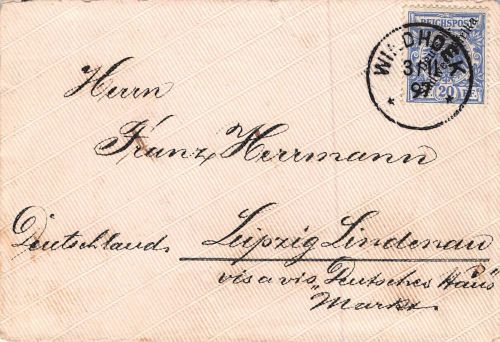 REICHSPOST
WINDHOEK
97
20
Herrn
Franz Herrmann
Deutschland. Leipzig Lindenau
vis a vis „Deutsches Haus"
Markt.